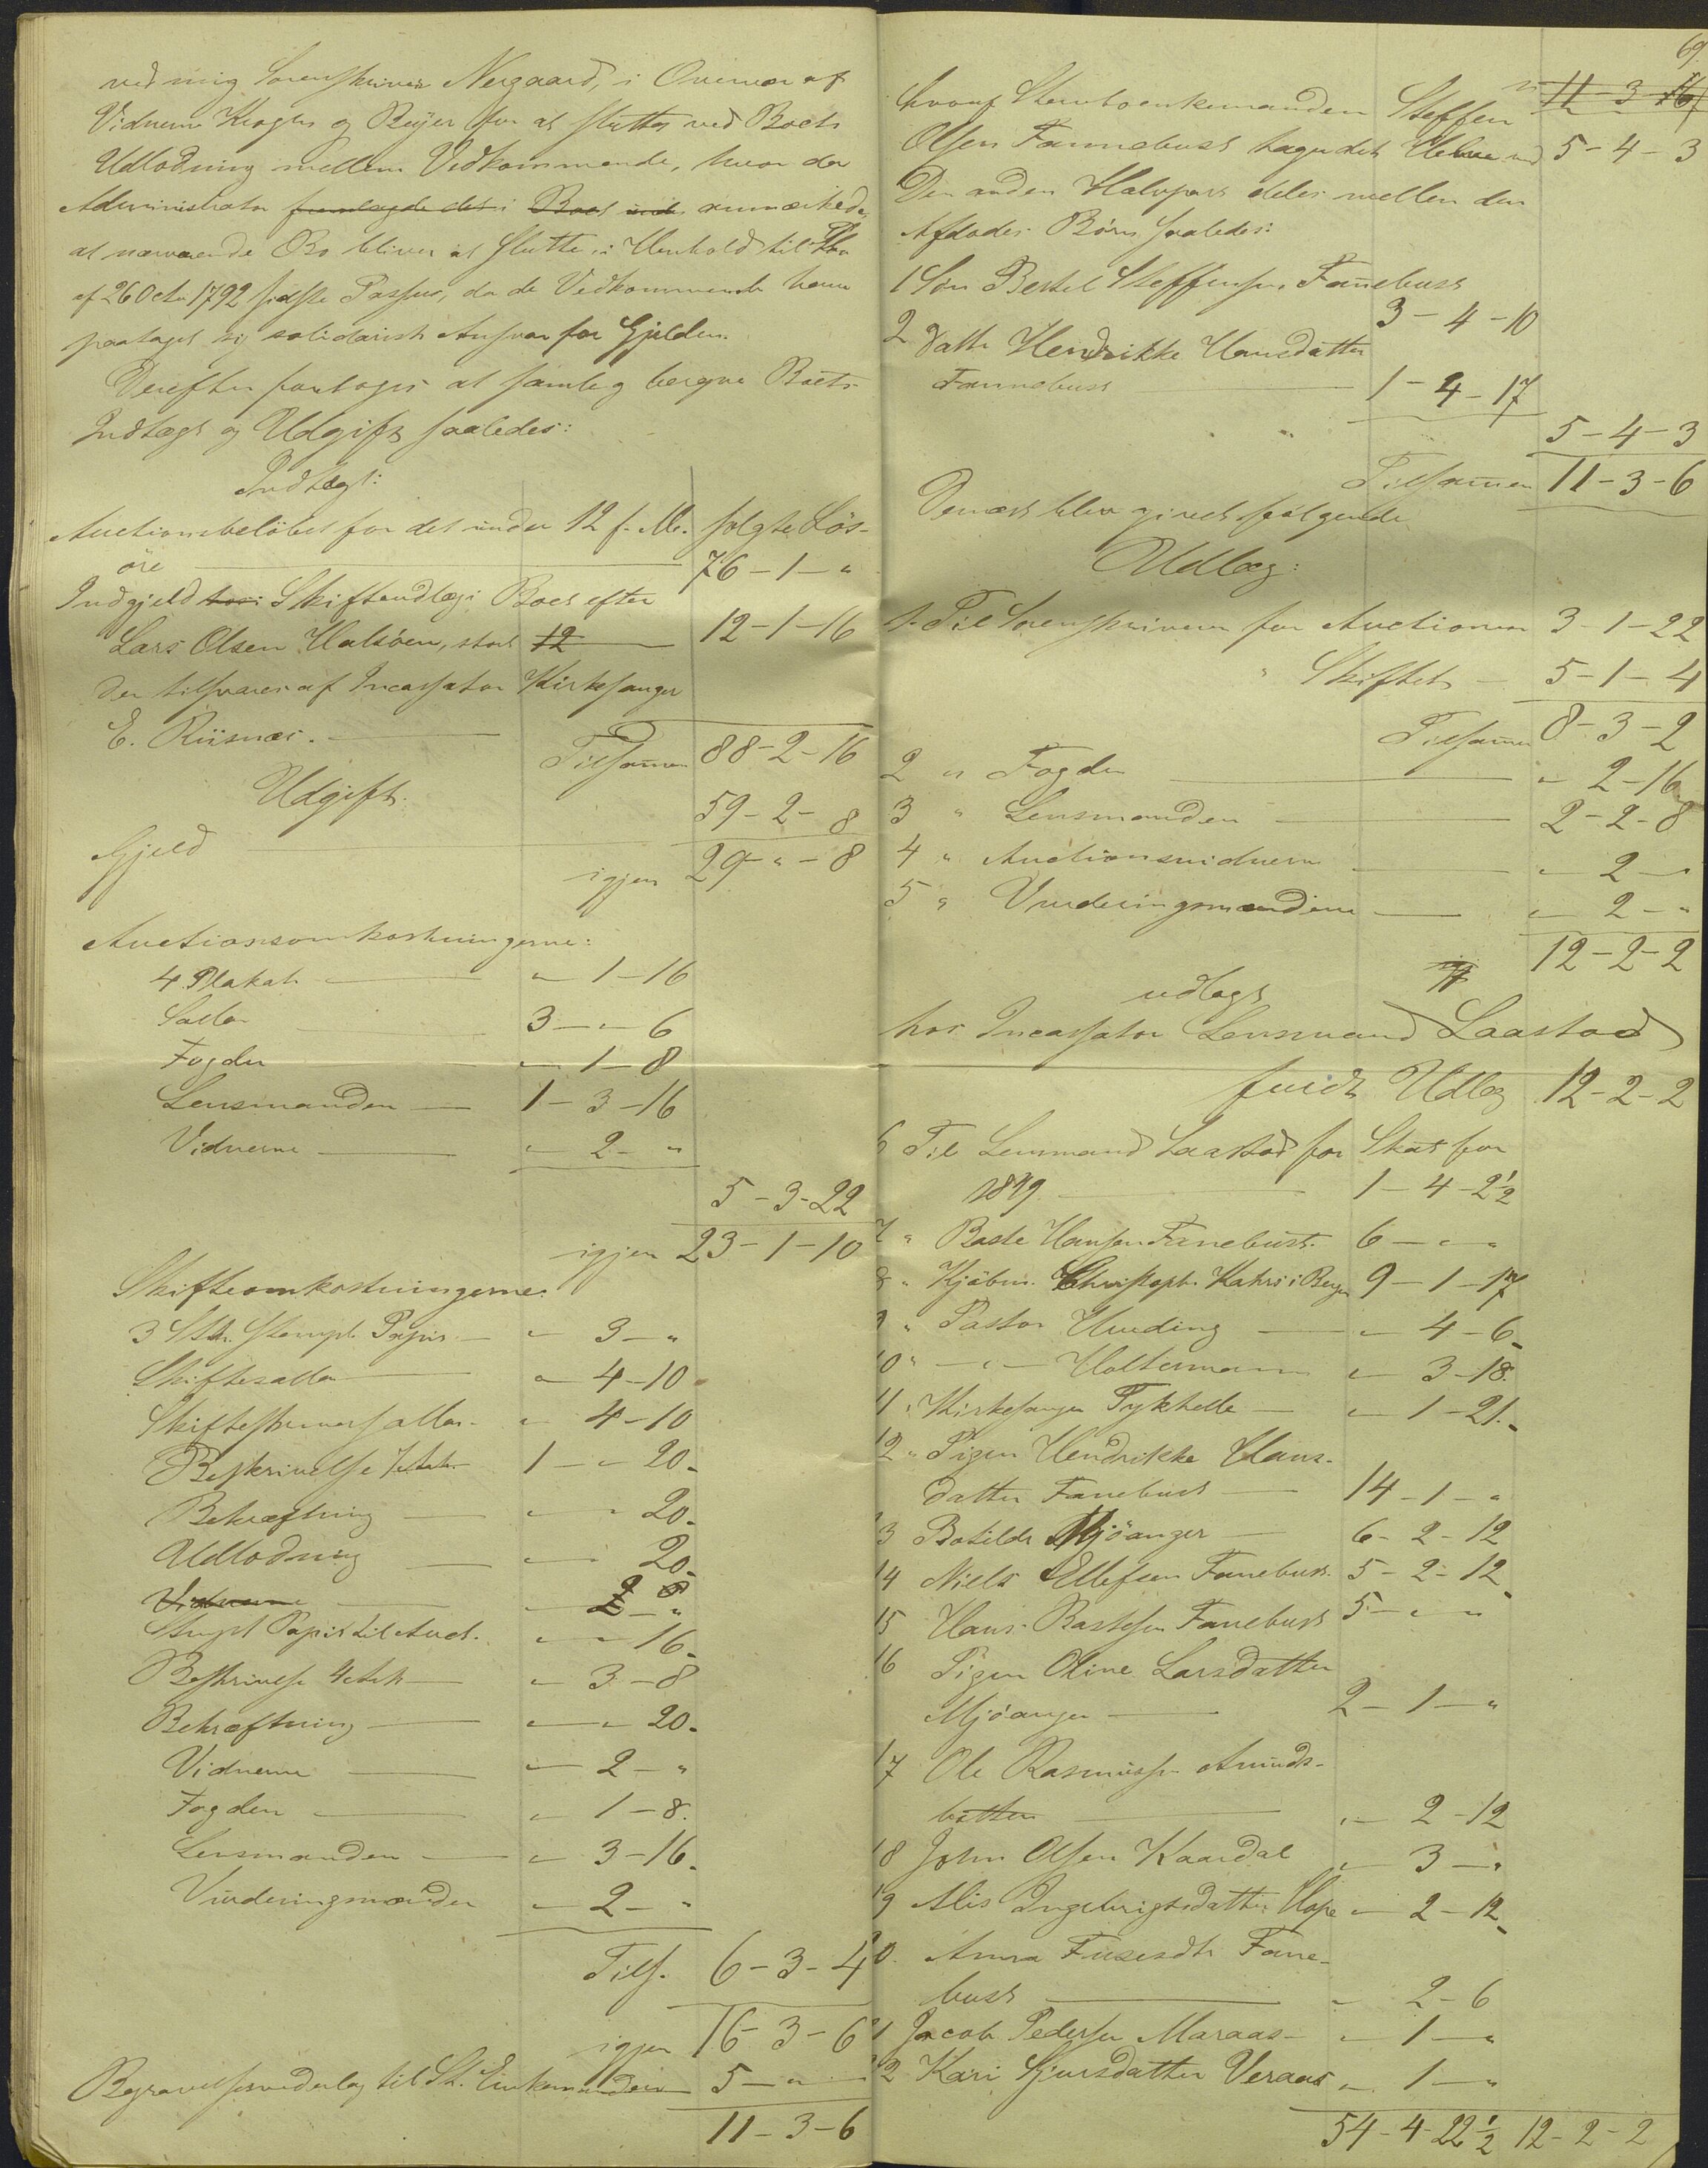 ved mig Sorenskriver Nergaard, i Overvær af
Vidnerne Krogh og Beyer for at slutte ved Boets
Udlodning mellem Vedkommende, hvor da
Administrator fremlagde det i Boet anmærkede,
at nærværende Bo bliver at slutte i Henhold til
af 26 Octr 1792 sidste Passus, da de Vedkommende have
paataget sig solidarisk Ansvar for Gjelden.
Derefter foretoges at samle og beregne Boets
Indtægt og Udgift saaledes:
Indtægt:
Auctionsbeløbet for det under 12 f. M. solgte Løs-
øre 76-1-"
Indgjeld hos Skifteudlæg i Boet efter
Lars Olsen Halsøen, stort 12 12-1-16
der tilsvares af Incassator Kirkesanger
E. Riisnæs.
Tilsamen 88-2-16
Udgift.
Gjeld 59-2-8
igjen 29-"-8
Auctionsomkostningerne:
4 Plakat "-1-16
Sallar 3-"-6
Fogden "-1-8
Lensmanden 1-3-16
Vidnerne "-2-"
5-3-22
igjen 23-1-10
Skifteomkostningerne:
3 Stk. Stempl. Papir "-3-"
Skiftesallar "-4-10
Skifteskriversallar "-4-10
Beskrivelse 1-"-20
Bekræftning "-"-20
Udlodning "-"-20
Vidnerne
Stempl Papir til Auct. "-"-16
Beskrivelse 4 Ark "-3-8
Bekræftning "-"-20
Vidnerne "-2-"
Fogden "-1-8
Lensmanden "-3-16
Vurderingsmænden "-2-"
Tils. 6-3-4
igjen 16-3-6
Begravelsesvederlag til St. Enkemanden 5-"-"
11-3-6
69
11-3-16
hvoraf Stervboenkemanden Steffen
Olsen Fannebust tager det Halve ud 5-4-3
Den anden Halvpart deles mellem den
Afdødes Børn saaledes:
1 Søn Bertel Steffensen Fanebust
3-4-10
2 Datter Hendrikke Hansdatter
Fannebust 1-4-17
5-4-3
Tilsamen 11-3-6
Dernæst blev givet følgende
Udlæg:
1. Til Sorenskriveren for Auctionen 3-1-22
" Skiftet 5-1-4
Tilsamen 8-3-2
2 " Fogden "-2-16
3 " Lensmanden 2-2-8
4 " Auctionsvidnerne "-2-"
5 " Vurderingsmændene "-2-"
12-2-2
udlagt
hos Incassator Lensmand Laastad
fuldt Udlæg 12-2-2
6 Til Lensmand Laastad for Skat for
1849 1-4-2½
7 " Baste Hansen Fanebust 6-"-"
8 " Kjøbm. Christoph. Kahrs i Bergen 9-1-17
9 " Pastor Hvoding "-4-6
10 " -"- Holtermann "-3-18
11 " Kirkesanger Tykhelle "-1-21
12 " Pigen Hendrikke Hans-
datter Fanebust 14-1-"
13 Botilde Mjøanger 6-2-12
14 Niels Ellefsen Fanebust 5-2-12
15 Hans Bastesen Fanebust 5-"-"
16 Pigen Oline Larsdatter
Mjøanger 2-1-"
17 Ole Rasmussen Amunds-
botten "-2-12
18 John Olsen Kaardal "-3-"
19 Alis Ingebrigtsdatter Hope "-2-12
20 Anna Fane-
bust "-2-6
21 Jacob Pedersen Maraas "-1-"
22 Kari Sjursdatter Veraas "-1-"
54-4-22½ 12-2-2